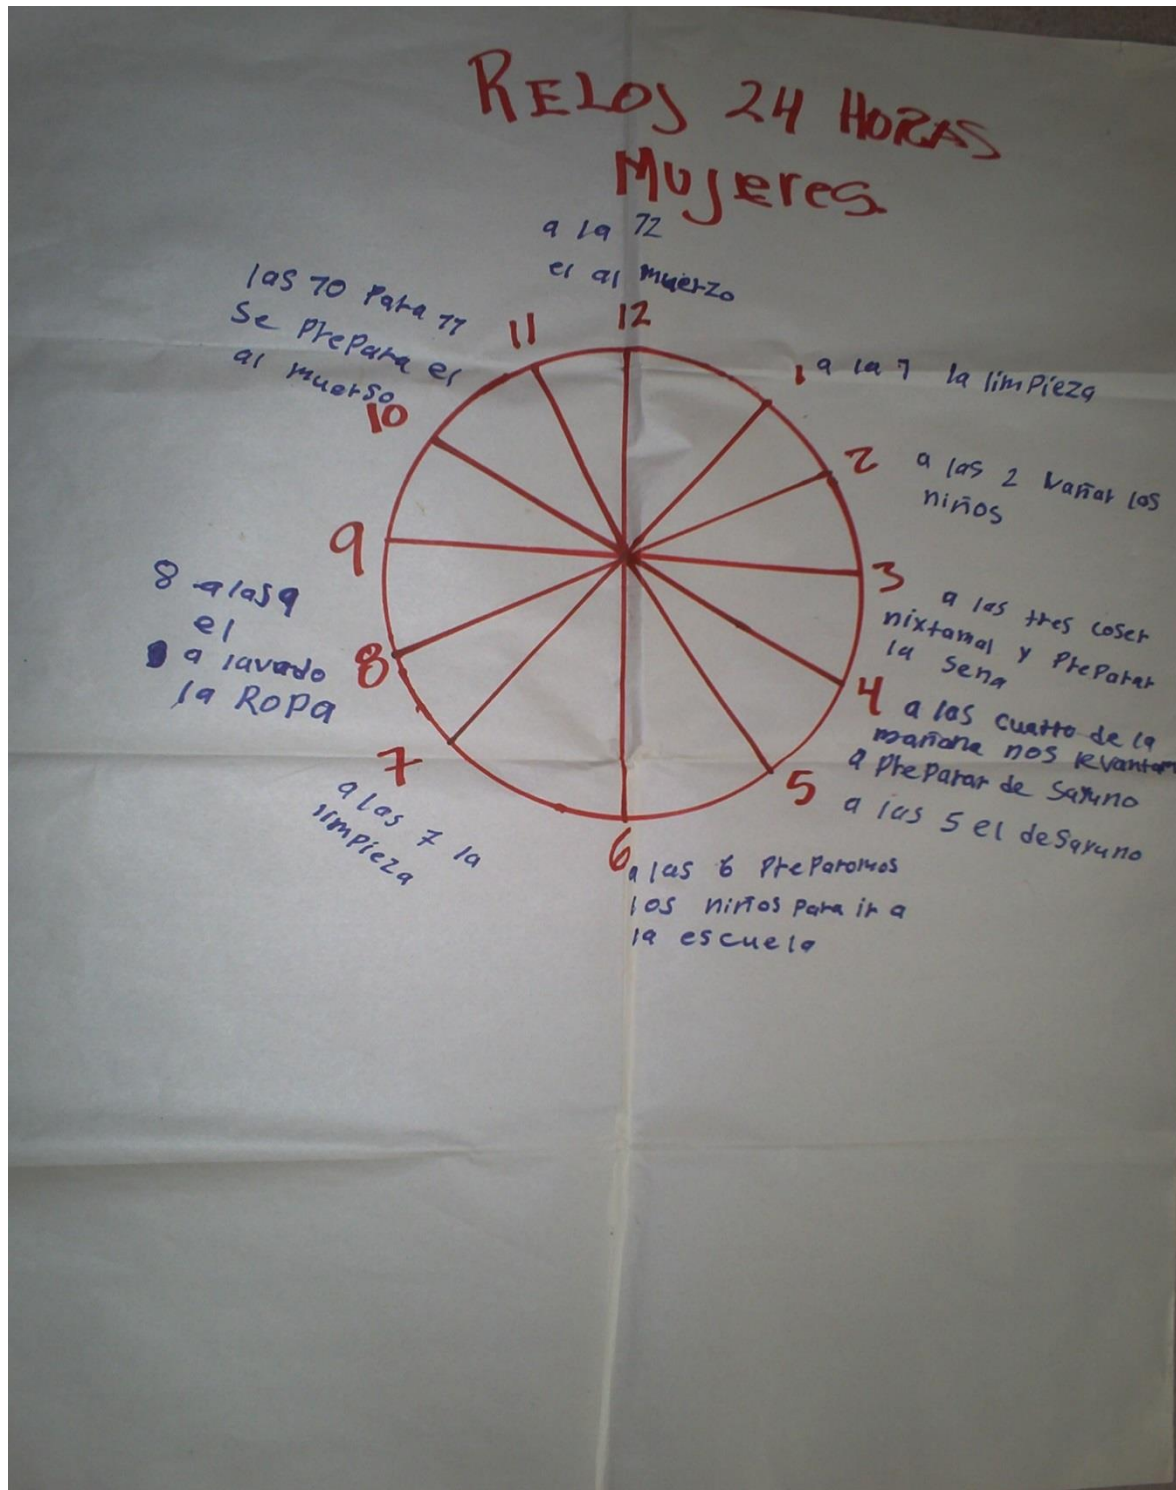 RELOJ 24 HORAS
Mujeres
a la 12
el al muerzo
12
1
a la 1 la limpieza
2
a las 2 vañar los
niños
3
a las tres coser
nixtamal y preparar
la sena
4
a las cuatro de la
mañana nos levantam
a preparar de sayuno
5
a las 5 el desayuno
6
a las 6 preparamos
los niños para ir a
la escuela
7
a las 7 la
limpieza
8
8 a las 9
el
a lavado
la ROPA
9
10
las 10 para 11
se prepara el
al muerso
11